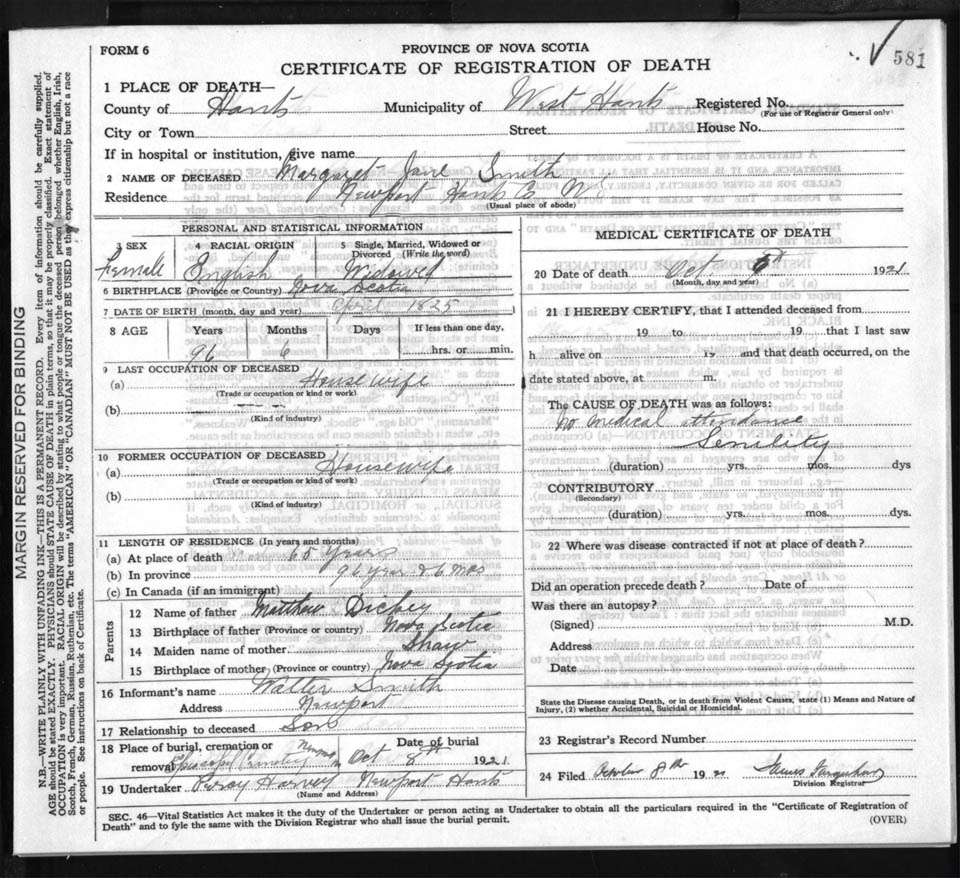 FORM 6
PROVINCE OF NOVA SCOTIA
581
CERTIFICATE OF REGISTRATION OF DEATH
1 PLACE OF DEATH—
County of Hants Municipality of West Hants Registered No.
(For use of Registrar General only)
City or Town Street House No.
If in hospital or institution, give name
2 NAME OF DECEASED Margaret Jane Smith
Residence Newport Hants Co. N.S.
(Usual place of abode)
PERSONAL AND STATISTICAL INFORMATION
3 SEX 4 RACIAL ORIGIN 5 Single, Married, Widowed or Divorced (Write the word)
Female English Widowed
6 BIRTHPLACE (Province or Country) Nova Scotia
7 DATE OF BIRTH (month, day and year) April 1825
8 AGE Years Months Days If less than one day,
96 6 hrs. or min.
9 LAST OCCUPATION OF DECEASED
(a) House wife
(Trade or occupation or kind of work)
(b)
(Kind of industry)
10 FORMER OCCUPATION OF DECEASED
(a) Housewife
(Trade or occupation or kind of work)
(b)
(Kind of industry)
11 LENGTH OF RESIDENCE (In years and months)
(a) At place of death 65 Years
(b) In province 96 year & 6 mos
(c) In Canada (if an immigrant)
Parents
12 Name of father Matthew Dickey
13 Birthplace of father (Province or country) Nova Scotia
14 Maiden name of mother Shaw
15 Birthplace of mother (Province or country) Nova Scotia
16 Informant's name Walter Smith
Address Newport
17 Relationship to deceased Son
18 Place of burial, cremation or removal Episcopal Cemetery Date of burial Oct 8th 1921
19 Undertaker Percy Harvey Newport Hants
(Name and Address)
MEDICAL CERTIFICATE OF DEATH
20 Date of death Oct. 6th 1921
(Month, day and year)
21 I HEREBY CERTIFY, that I attended deceased from
19 to 19 that I last saw
h alive on 19 and that death occurred, on the
date stated above, at m.
The CAUSE OF DEATH was as follows:
no medical attendance
Senility
(duration) yrs. mos. dys
CONTRIBUTORY
(Secondary)
(duration) yrs. mos. dys.
22 Where was disease contracted if not at place of death?
Did an operation precede death? Date of
Was there an autopsy?
(Signed) M.D.
Address
Date
State the Disease causing Death, or in death from Violent Causes, state (1) Means and Nature of
Injury, (2) whether Accidental, Suicidal or Homicidal.
23 Registrar's Record Number
24 Filed October 8th 1921
Division Registrar
SEC. 46—Vital Statistics Act makes it the duty of the Undertaker or person acting as Undertaker to obtain all the particulars required in the "Certificate of Registration of
Death" and to fyle the same with the Division Registrar who shall issue the burial permit.
(OVER)
MARGIN RESERVED FOR BINDING
N.B.—WRITE PLAINLY WITH UNFADING INK—THIS IS A PERMANENT RECORD. Every item of information should be carefully supplied.
AGE should be stated EXACTLY. PHYSICIANS should STATE CAUSE OF DEATH in plain terms, so that it may be properly classified. Exact statement of
OCCUPATION is very important. RACIAL ORIGIN will be described by stating to what people or tongue the deceased person belonged, whether English, Irish,
Scotch, French, German, Russian, Ruthenian, etc. The terms "AMERICAN" or "CANADIAN" MUST NOT BE USED as they express citizenship but not a race
or people. See instructions on back of Certificate.